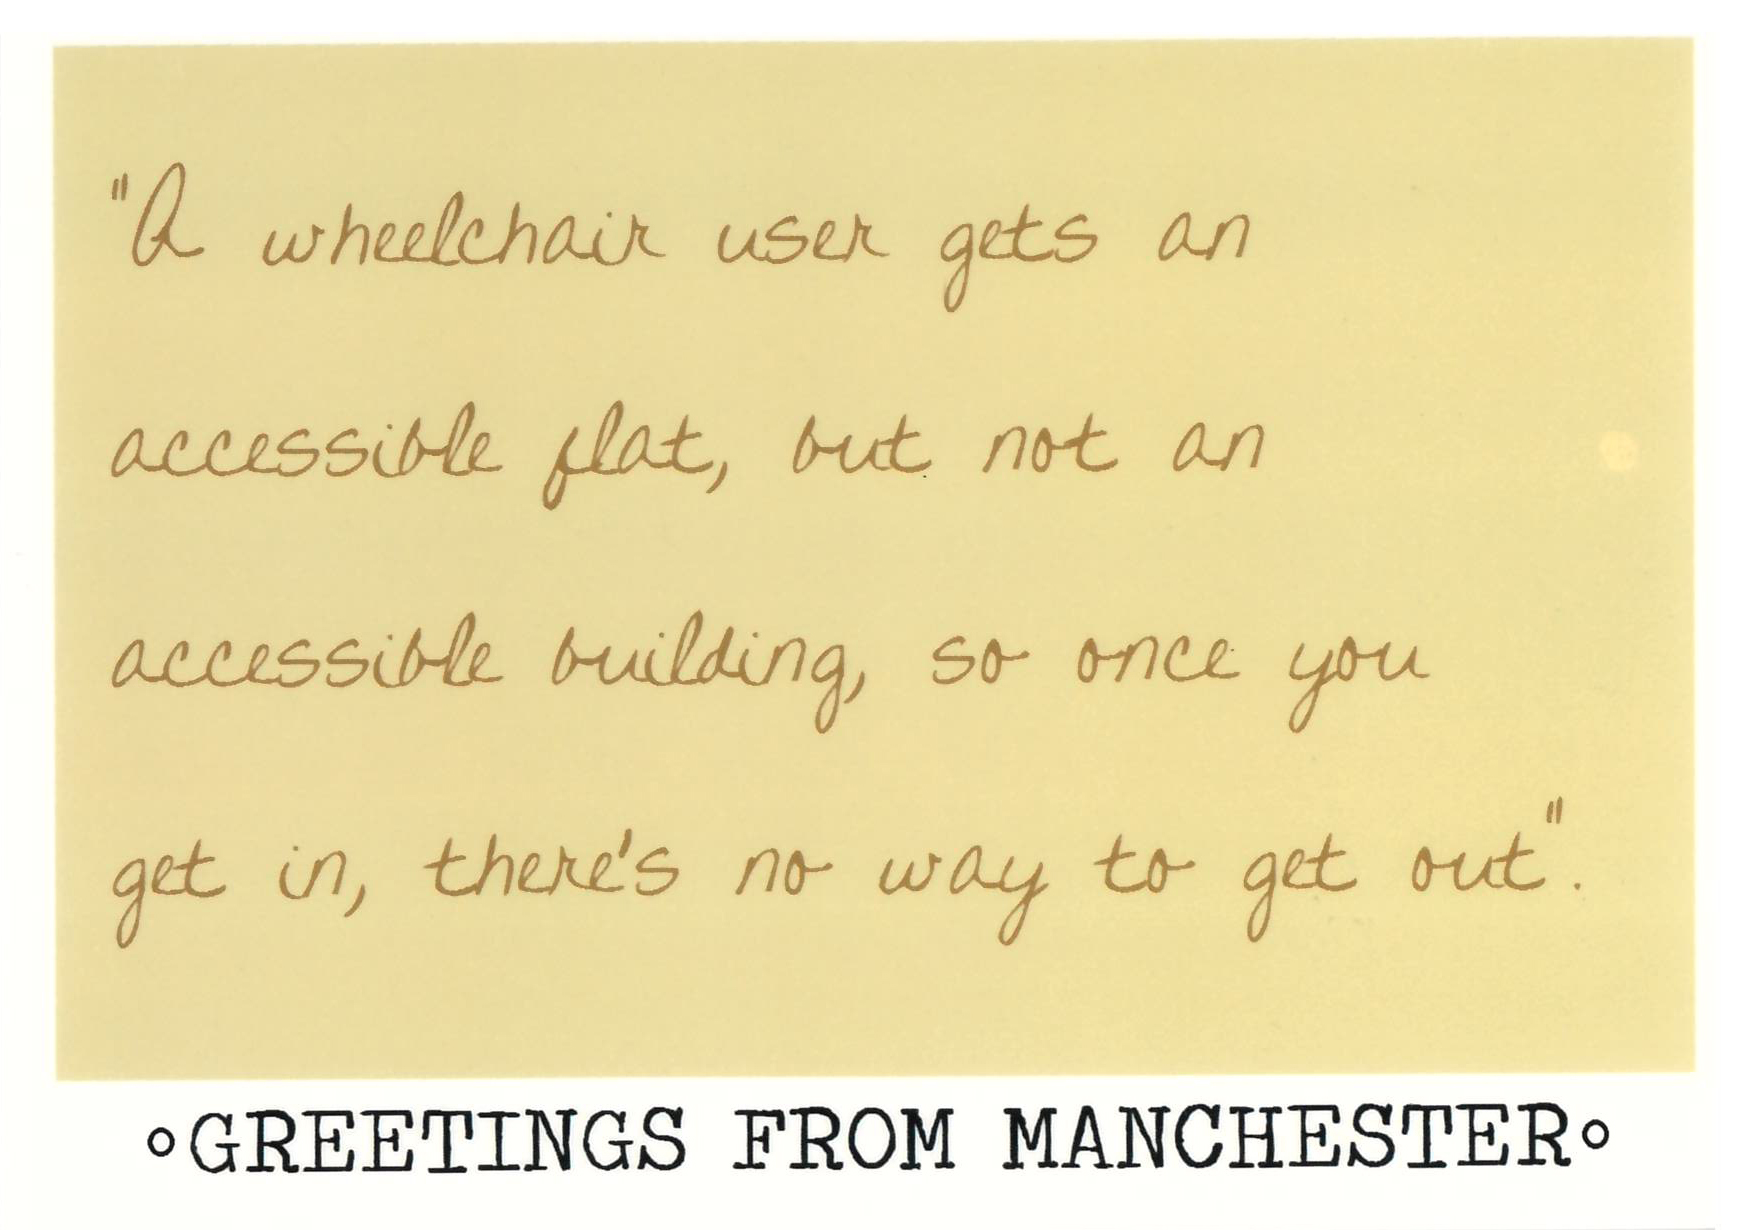 "A wheelchair user gets an
accessible flat, but not an
accessible building, so once you
get in, there's no way to get out".
°GREETINGS FROM MANCHESTER°